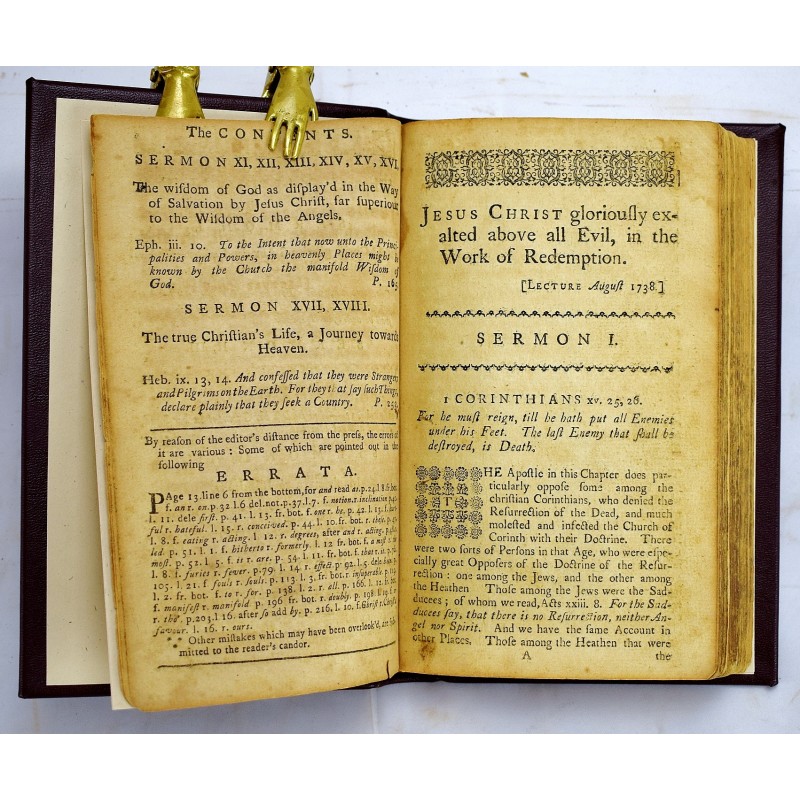 The CONTENTS.
SERMON XI, XII, XIII, XIV, XV, XVI.
The wiſdom of God as diſplay'd in the Way
of Salvation by Jeſus Chriſt, far ſuperiour
to the Wiſdom of the Angels.
Eph. iii. 10. To the Intent that now unto the Princi-
palities and Powers, in heavenly Places might be
known by the Church the manifold Wiſdom of
God. P. 165
SERMON XVII, XVIII.
The true Chriſtian's Life, a Journey towards
Heaven.
Heb. ix. 13, 14. And confeſſed that they were Strangers
and Pilgrims on the Earth. For they that ſay ſuch Things,
declare plainly that they ſeek a Country. P.
By reaſon of the editor's diſtance from the preſs, the errors of
it are various: Some of which are pointed out in the
following
ERRATA.
PAge 13. line 6 from the bottom, for and read as. p. 24. l 8 fr. bot.
f. an r. en. p. 32 l. 6 del. not. p. 37. l. 7. f. notion. r. inclination p. 40.
l. 11. dele firſt. p. 41. l. 13. fr. bot. f. one r. be. p. 42. l. 11. f.
ful r. hateful. l. 15. r. conceived. p. 44. l. 10. fr. bot. r. theſe. p. 45.
l. 8. f. eating r. acting. l. 12. r. degrees, after and r. acti
led. p. 51. l. 11. f. hitherto r. formerly. l. 12 fr. bot. f. a moſt r.
moſt. p. 52. l. 5. f. is r. are. p. 54. l. 11. fr. bot. f. that is r.
l. 8. f. furies r. fever. p. 79. l. 14. r. effect. p. 92. l. 5. dele
105. l. 21. f ſouls r. fouls. p. 113. l. 3. fr. bot. r. inſuperable p.
l. 2. fr. bot. f. to r. for. p. 138. l. 2. r. all. p. 166. l. 12. fr. bot.
f. manifeſt r. manifold p. 196 fr. bot. r. doubly. p. 198. l.
r. tho' p. 203. l 16. after ſo add by. p. 216. l. 10. f. Chriſt r. Chriſt's
favour. l. 16. r. ours.
*** Other miſtakes which may have been overlook'd, are ſub-
mitted to the reader's candor.
JESUS CHRIST gloriouſly ex-
alted above all Evil, in the
Work of Redemption.
[LECTURE Auguſt 1738.]
SERMON I.
1 CORINTHIANS xv. 25, 26.
For he muſt reign, till he hath put all Enemies
under his Feet. The laſt Enemy that ſhall be
deſtroyed, is Death.
THE Apoſtle in this Chapter does par-
ticularly oppoſe ſome among the
chriſtian Corinthians, who denied the
Reſurrection of the Dead, and much
moleſted and infected the Church of
Corinth with their Doctrine. There
were two ſorts of Perſons in that Age, who were eſpe-
cially great Oppoſers of the Doctrine of the Reſur-
rection: one among the Jews, and the other among
the Heathen Thoſe among the Jews were the Sad-
ducees; of whom we read, Acts xxiii. 8. For the Sad-
ducees ſay, that there is no Reſurrection, neither An-
gel nor Spirit. And we have the ſame Account in
other Places. Thoſe among the Heathen that were
A the